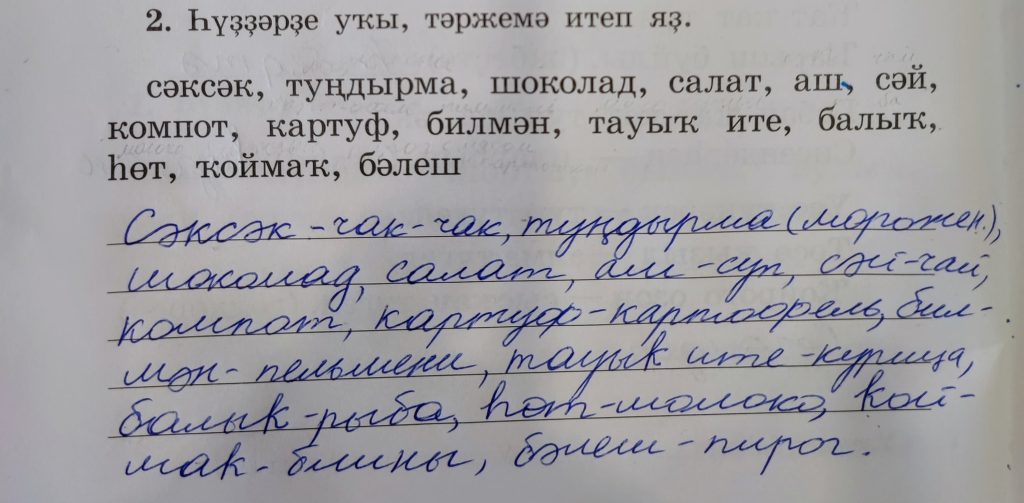 2. Һүҙҙәрҙе уҡы, тәржемә итеп яҙ.
сәксәк, туңдырма, шоколад, салат, аш, сәй,
компот, картуф, билмән, тауыҡ ите, балыҡ,
һөт, ҡоймаҡ, бәлеш
Сәксәк - чак-чак, туңдырма (морожен.),
шоколад, салат, аш - суп, сәй - чай,
компот, картуф - картофель, бил-
мән - пельмени, тауыҡ ите - курица,
балыҡ - рыба, һөт - молоко, ҡой-
маҡ - блины, бәлеш - пирог.